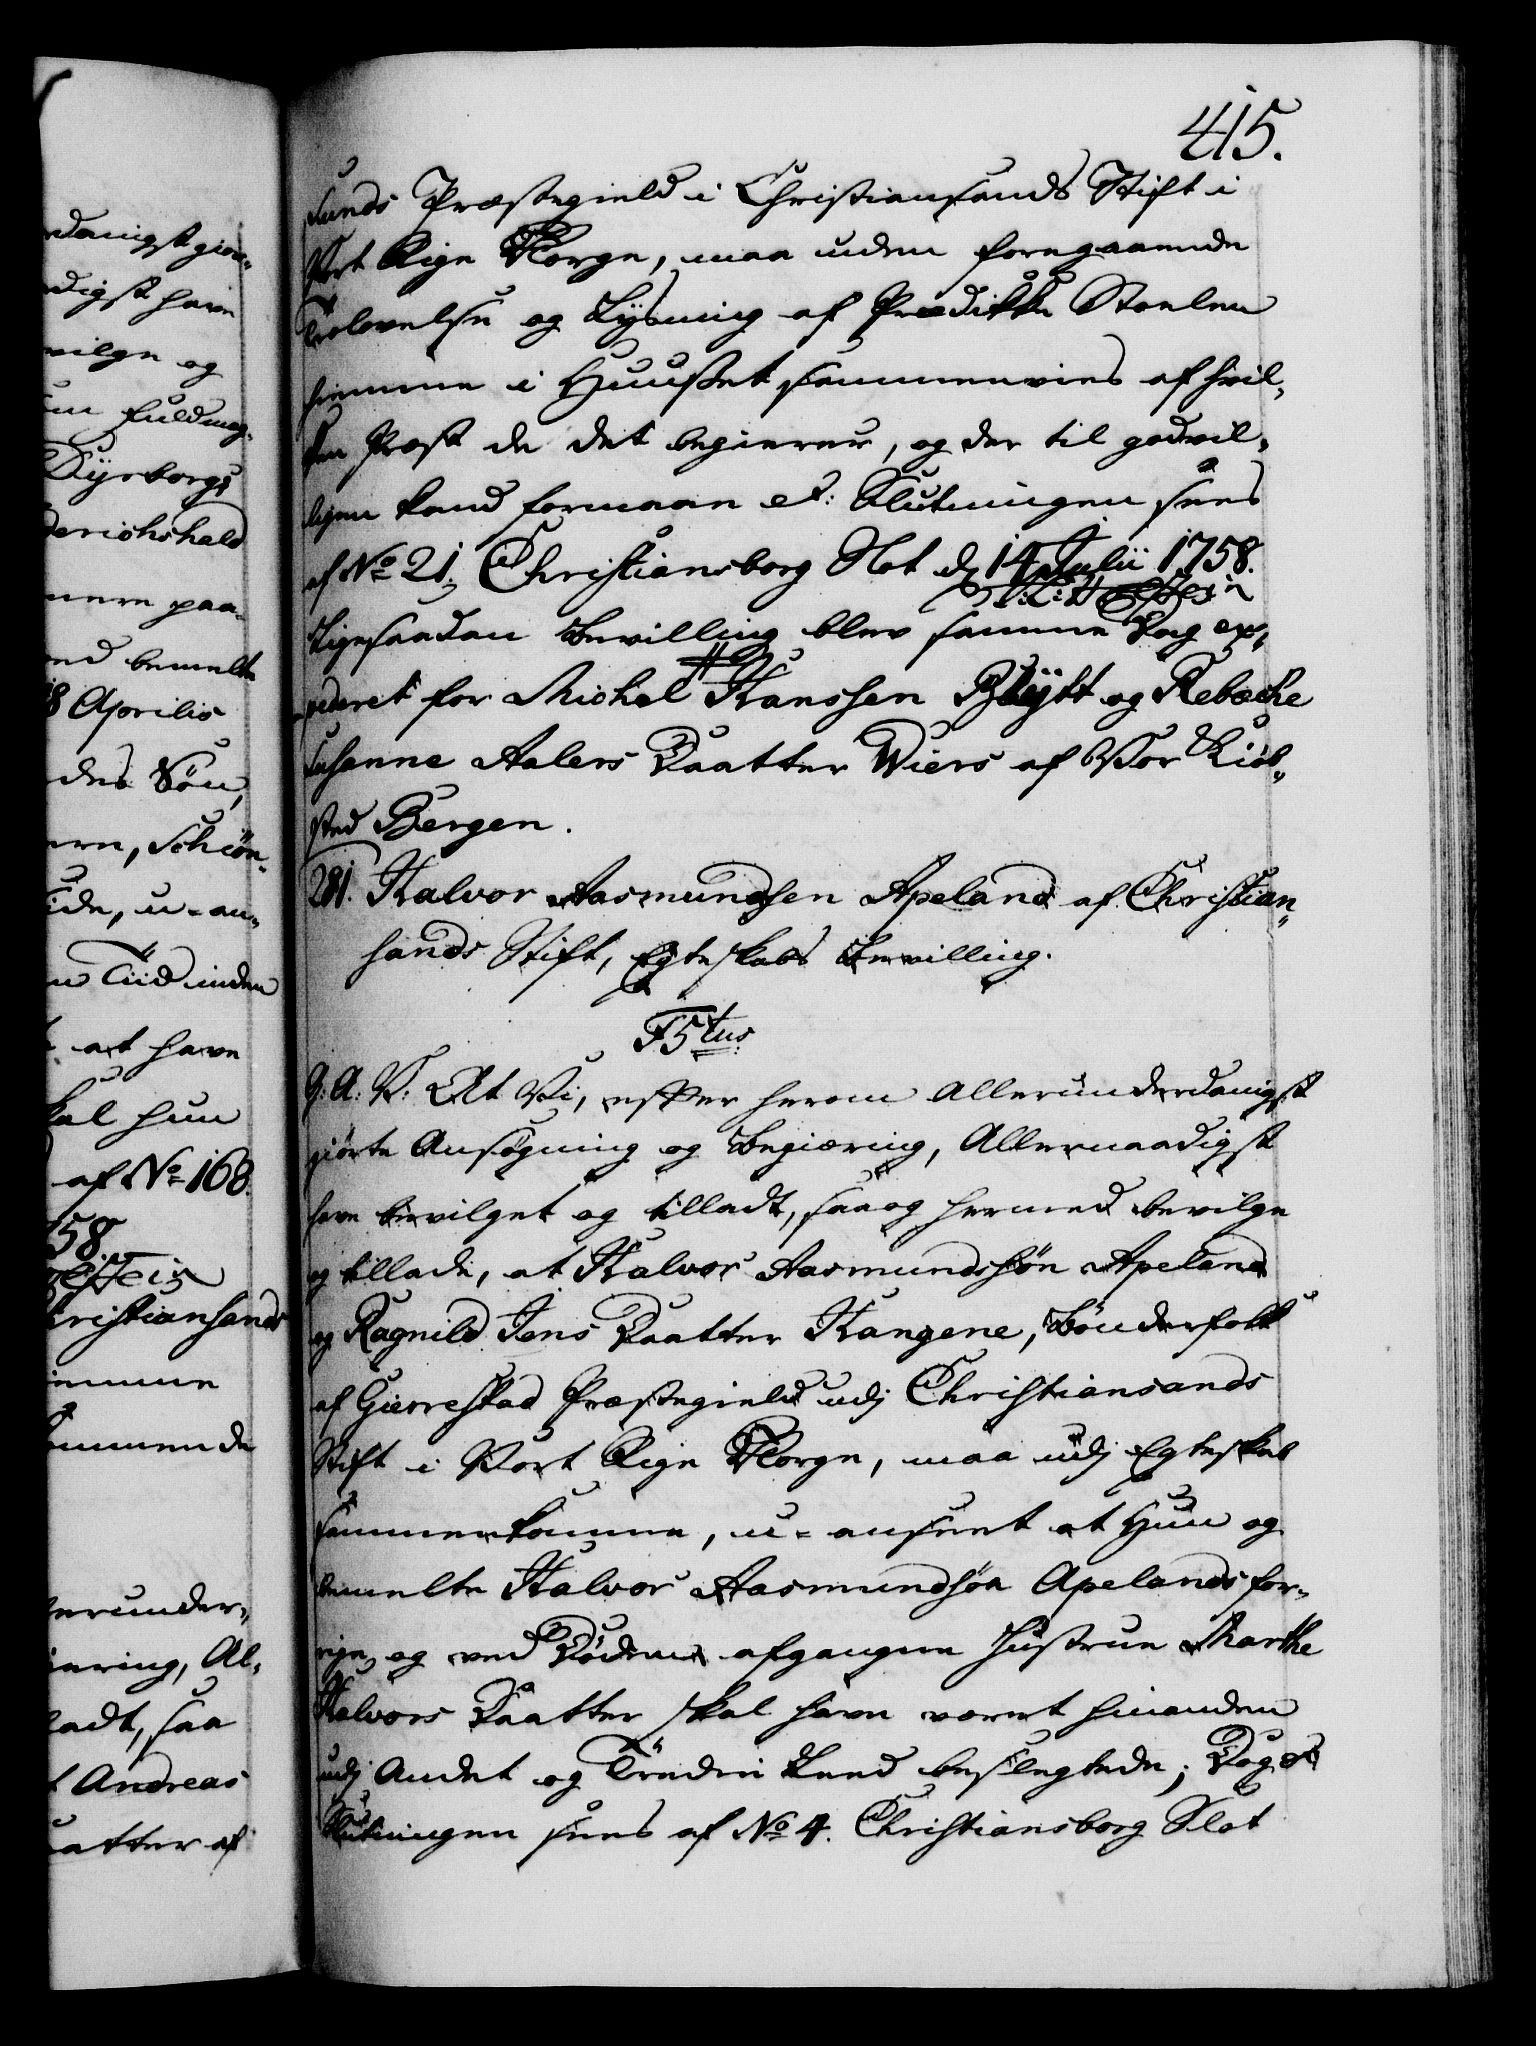 415.
Lunds Præstegield i Christiansands Stift i
Vort Rige Norge, maa uden foregaaende
Trolovelse og Lysning af Prædikke Stoelen
hiemme i Huuset sammenvies af hvil-
ken Præst de det begierer, og der til godvil-
ligen kand formaae et: Slutningen sees
af No 21. Christiansborg Slot d 14 Julii 1758.
Ligesaadan Bevilling blev samme Dag ex-
pederet for Michel Hanssen Blÿtt og Rebecke
Susanne Aalers Daatter Wiers af Vor Kiöb-
sted Bergen.
281. Halvor Aasmundsen Apeland af Christian-
sands Stift, Egteskabs Bevilling.
F 5tus
G: A: V: At Vi, efter herom Allerunderdanigst
giörte Ansögning og Begiæring, Allernaadigst
have bevilget og tilladt, saa og hermed bevilge
og tillade, at Halvor Aasmundssön Apeland
og Ragnild Jens Daatter Hangene, Bönderfolk
af Gierrestad Præstegield udj Christiansands
Stift i Vort Rige Norge, maa udj Egteskab
sammenkomme, u-anseet at Hun og
bemelte Halvor Aasmundsön Apelands for-
rige og ved Döden afgangne Hustrue Marthe
Halvors Daatter skal have været hinanden
udj Andet og Tredie Leed beslegtede; Dog et
Slutningen sees af No 4. Christiansborg Slot
rdanigst giør-
digst have
vilge og
Fuldmæg-
Dyrborg
derichshald
mere paa-
ed bemelte
18 Aprilis
des Sön,
ern, Schiön-
ide, u-an-
Tiid inden
at have
kal hun
af No 168.
58.
Christiansands
iemme
ommende
erunder-
iæring, Al-
ladt, saa
t Andreas
aatter af